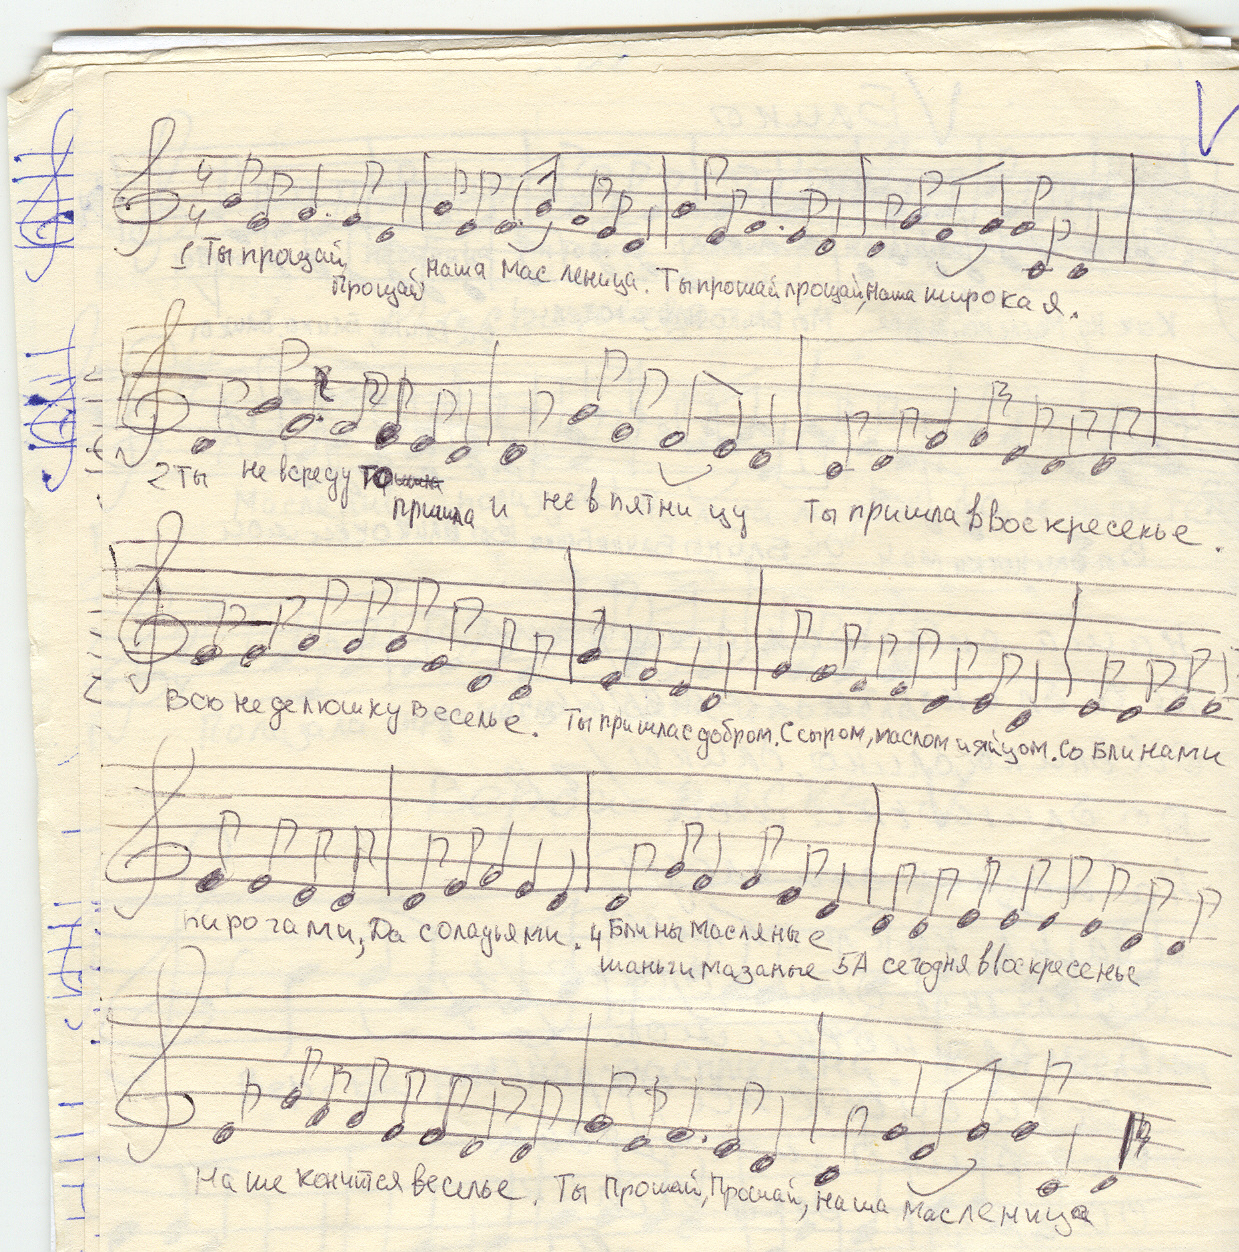 4
4
1 Ты прощай, прощай наша масленица. Ты прощай прощай, наша широкая.
2 Ты не всреду пришла и не в пятницу Ты пришла в Воскресенье.
Всю неделюшку веселье. Ты пришла с добром. С сыром, маслом и яйцом. Со блинами
пирогами, Да соладьями. 4 Блины масляные
шаньги мазаные 5 А сегодня в Воскресенье
Наше кончится веселье. Ты Прощай, Прощай, наша масленица